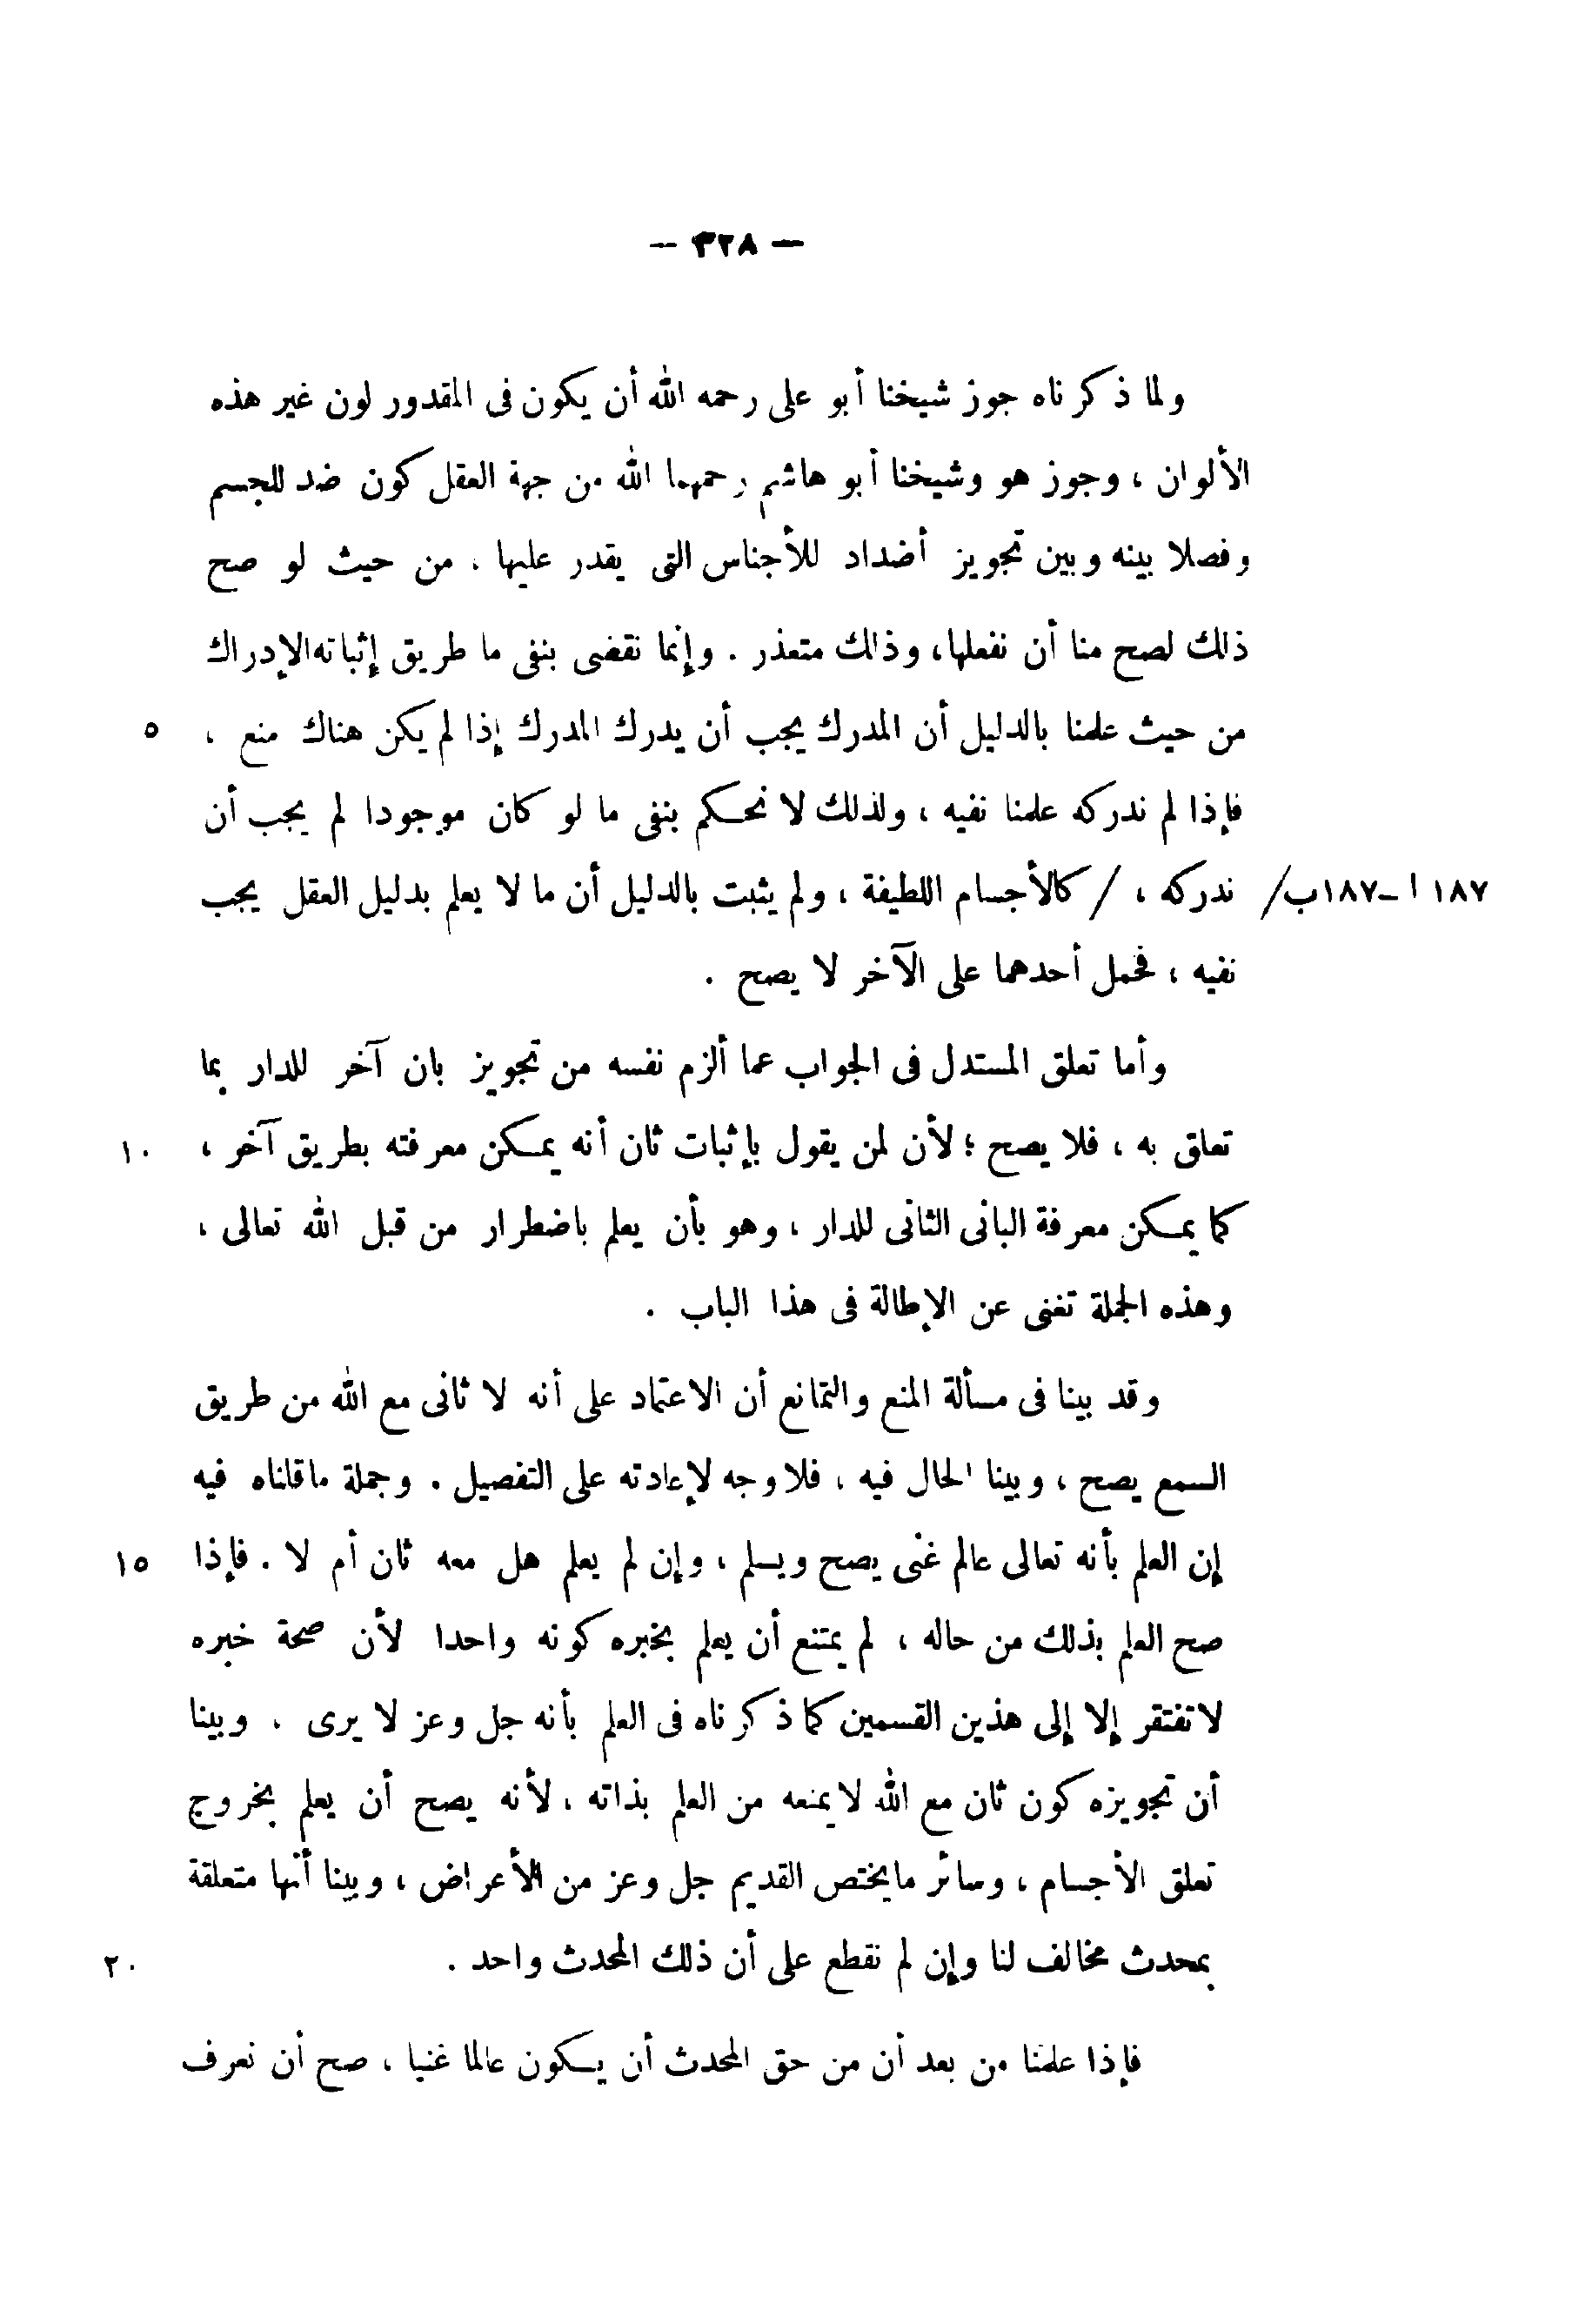 — ٣٢٨ —
ولما ذكرناه جوز شيخنا أبو على رحمه الله أن يكون فى المقدور لون غير هذه
الألوان ، وجوز هو وشيخنا أبو هاشم رحمهما الله من جهة العقل كون ضد للجسم
وفصلا بينه وبين تجويز أضداد للأجناس التى يقدر عليها ، من حيث لو صح
ذلك لصح منا أن نفعلها، وذلك متعذر . وإنما نقضى بنفى ما طريق إثباته الإدراك
من حيث علمنا بالدليل أن المدرك يجب أن يدرك المدرك إذا لم يكن هناك منع ، ٥
فإذا لم ندركه علمنا نفيه ، ولذلك لا نحكم بنفى ما لو كان موجودا لم يجب أن
١٨٧ ا ـ ١٨٧ب/ ندركه ، / كالأجسام اللطيفة ، ولم يثبت بالدليل أن ما لا يعلم بدليل العقل يجب
نفيه ، فحمل أحدهما على الآخر لا يصح .
وأما تعلق المستدل فى الجواب عما ألزم نفسه من تجويز بان آخر للدار بما
تعلق به ، فلا يصح ؛ لأن لمن يقول بإثبات ثان أنه يمكن معرفته بطريق آخر ، ١٠
كما يمكن معرفة البانى الثانى للدار ، وهو بأن يعلم باضطرار من قبل الله تعالى ،
وهذه الجملة تغنى عن الإطالة فى هذا الباب .
وقد بينا فى مسألة المنع والتمانع أن الاعتماد على أنه لا ثانى مع الله من طريق
السمع يصح ، وبينا الحال فيه ، فلا وجه لإعادته على التفصيل . وجملة ماقلناه فيه
إن العلم بأنه تعالى عالم غنى يصح ويسلم ، وإن لم يعلم هل معه ثان أم لا . فإذا ١٥
صح العلم بذلك من حاله ، لم يمتنع أن يعلم بخبره كونه واحدا لأن صحة خبره
لا تفتقر إلا إلى هذين القسمين كما ذكرناه فى العلم بأنه جل وعز لا يرى . وبينا
أن تجويزه كون ثان مع الله لا يمنعه من العلم بذاته ، لأنه يصح أن يعلم بخروج
تعلق الأجسام ، وسائر مايختص القديم جل وعز من الأعراض ، وبينا أنها متعلقة
بمحدث مخالف لنا وإن لم نقطع على أن ذلك المحدث واحد . ٢٠
فإذا علمنا من بعد أن من حق المحدث أن يكون عالما غنيا ، صح أن نعرف